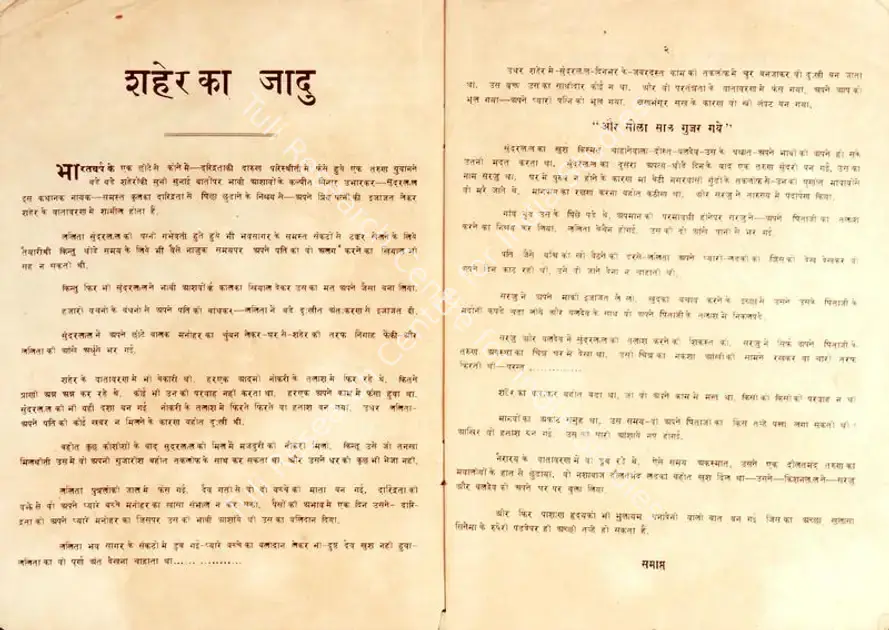 शहेर का जादु
भारतवर्ष के एक छोटेसे कोनेमें—दारिद्रताकी दारुण परिस्थीतीमें फंसे हुये एक तरुण युवानने
बडे बडे शहेरोंकी सुनी सुनाई बातोंपर भावी आशावोंके कल्पीत मिनार उभारकर—सुंदरलाल
इस कथानक नायक—समस्त कुलका दारिद्रता से पिछा छुडाने के निश्चय से—अपने प्रिय पत्नीकी इजाजत लेकर
शहेर के वातावरण में शामील होता है.
ललिता सुंदरलाल की पत्नी गर्भवती हुते हुये भी भवसागर के समस्त संकटोंसे टक्कर खेलने के लिये
तैयारीथी किन्तु थोडे समय के लिये भी वैसे नाजुक समयपर अपने पति को वो अलग करने का खियाल भी
सह न सकती थी.
किन्तु फिर भी सुंदरलालने भावी आशायोंके कालका खियाल देकर उस का मत अपने जैसा बना लिया.
हजारों वचनों के बंधनोंसे अपने पति को बांधकर—ललिता ने बडे दुःखीत अंतःकरण से इजाजत दी.
सुंदरलाल ने अपने छोटे बालक मनोहर का चुंबन लेकर—घर से-शहेर की तरफ निगाह फेंकी और
ललिता की आंखें अश्रुसे भर गई.
शहेर के वातावरण में भी बेकारी थी. हरएक आदमी नोकरी के तलाश में फिर रहे थे. कितने
प्राणी अन्न अन्न कर रहे थे. कोई भी उन की परवाह नहीं करता था. हरएक अपने काम में फंसा हुवा था.
सुंदरलाल की भी यही दशा बन गई. नोकरी के तलाश में फिरते फिरते वो हताश बन गया. उधर ललिता-
अपने पति की कोई खबर न मिलने के कारण बहोत दुःखी थी.
बहोत कुछ कोशीशों के बाद सुंदरलाल को मिल में मजदुरी की नोकरी मिली. किन्तु उसे जो तनखा
मिलतीथी उस में वो अपनी गुजारीश बहोत तकलीफ के साथ कर सकता था. और उसने घर को कुछ भी भेजा नहीं.
ललिता पुत्रलोभकी जाल में फंस गई. दैव गती से वो दो बच्चे की माता बन गई. दारिद्रता की
वजेसे वो अपने प्यारे बच्चे मनोहर का खासा संभाल न कर सकी. पैसों की अभाव में एक दिन उसने- दारि-
द्रता को अपने प्यारे मनोहर का जिसपर उस की भावी आशायें थी उस का बलिदान दिया.
ललिता भव सागर के संकटों में डुब गई-प्यारे बच्चे का बलीदान लेकर भी-दुष्ट दैव खुश नहीं हुवा-
ललिता का वो पूर्ण अंत देखना चाहाता था.................
२
उधर शहेर में-सुंदरलाल-दिनभर के-जबरदस्त काम की तकलीफ में चुर बनजाकर वो दुःखी बन जाता
था. उस वख्त उस का साथीदार कोई न था. और वो परतंत्रता के वातावरण में फंस गया. अपने आप को
भूल गया—अपने प्यारी पत्नि को भूल गया. क्षणभंगुर सुख के कारण वो स्त्री लंपट बन गया.
"और सोला साल गुजर गये"
सुंदरलाल का खुश किस्मत चाहानेवाला-दोस्त-बलदेव-उस के पश्चात-अपने भाभी को अपने हो सके
उतनी मदत करता था. सुंदरलाल का दुसरा अपत्य-थोडे दिन के बाद एक तरुण सुंदरी बन गई, उस का
नाम सरजु था. घर में पुरुष न होने के कारण मां बेटी नगरवासी गुंडों के तकलीफ से-उन की घृणीत भाषावोंसे
वो मरे जाते थे. मानभंग का रक्षण करना बहोत कठीण था. और सरजु ने तारुण्य में पदार्पण किया.
गांव गुंड उन के पिछे पडे थे, अपमान की परमावधी होनेपर सरजु ने—अपने पिताजी का तलाश
करने का निश्चय कर लिया. ललिता बेचैन होगई. उस की दो आंखें पानी से भर गई.
पति जैसे बच्ची को खो बैठने की डरसे-ललिता अपने प्यारी-लडकी को जिस को देख देखकर वो
अपने दिन काट रही थी, उसे वो जाने देना न चाहाती थी.
सरजु ने अपने मां की इजाजत ले ली. खुद का बचाव करने के इच्छा से उसने पुरुष पिताजी के
मर्दानी कपडे चढा लीये और बलदेव के साथ वो अपने पिताजी के तलाश में निकलपडे.
सरजु और बलदेव में सुंदरलाल की तलाश करने की शिकस्त की. सरजु ने सिर्फ अपने पिताजी के
तरुण अवस्था का चित्र घर में देखा था. उसी चित्र का नकशा आंखों की सामने रखकर वो चारों तरफ
फिरती थी—परन्तु ...............
शहेर का चक्कर बहोत बडा था, जो वो अपने काम में मस्त था. किसी को किसी की परवाह न थी
मानवों का अफाट समुह था. उस समय-वो अपने पिताजी का किस तर्‍हे पत्ता लगा सकती थी?
आखिर वो हताश बन गई. उस की सारी आशायें नष्ट होगई.
नैराश्य के वातावरण में वो डुब रहे थे. ऐसे समय अकस्मात, उसने एक दौलतमंद तरुण को
मवालीयों के हात से छुडाया. वो नशाबाज दौलतमंद लडका बहोत खुश दिल था—उसने—किशनलालने—सरजु
और बलदेव को अपने घर पर बुला लिया.
और फिर पाषाण हृदय को भी मुलायम बनादेनी वाली बात बन गई जिस का अच्छा खुलासा
सिनेमा के रुपेरी पडदेपर ही अच्छी तर्‍हे हो सकता है.
समाप्त